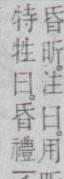 昏昕注曰用
特牲曰昏禮